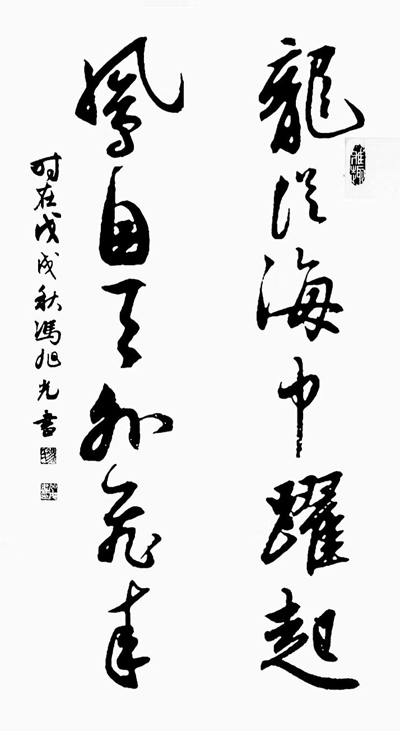 龍從海中躍起
鳳自天外飛來
时在戊戌秋馮旭光書